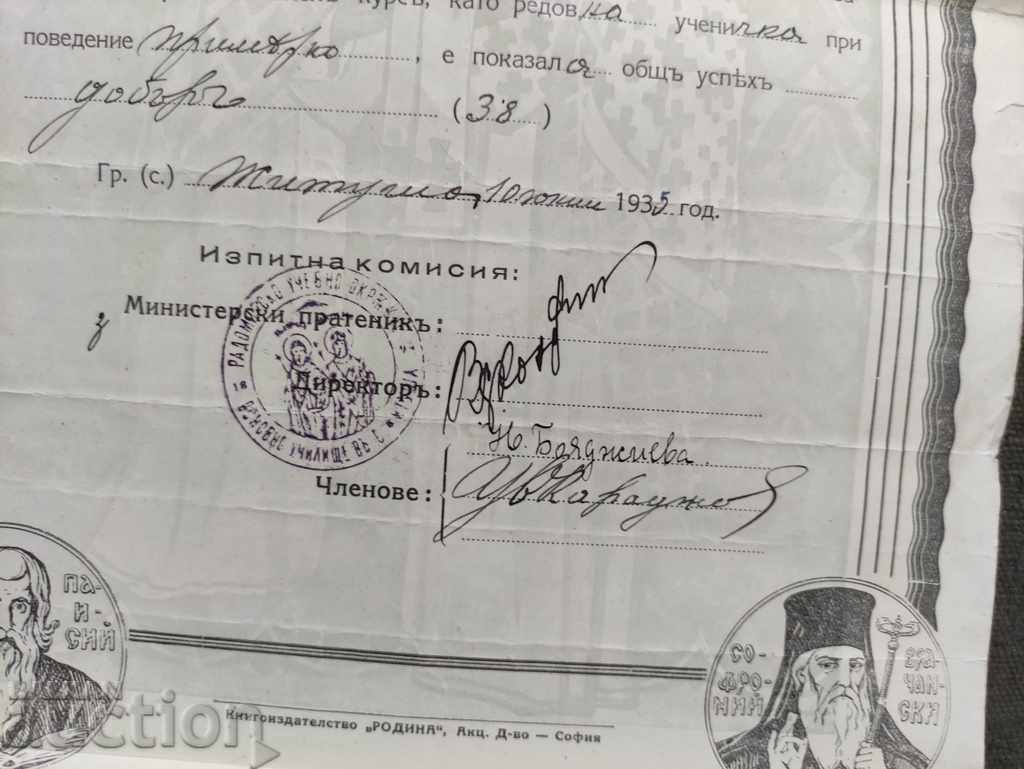 курсъ, като редовна ученичка при
поведение примѣрно, е показала общъ успѣхъ
добъръ (3.8)
Гр. (с.) Житуша, 10 юни 1935 год.
Изпитна комисия:
Министерски пратеникъ:
Директоръ:
Бояджиева.
Членове:
РАДОМИРСКО УЧЕБНО
УЧИЛИЩЕ ВЪ С.
ПА-
И-
СИЙ
СО-
ФРО-
НИЙ
ВРА-
ЧАН-
СКИ
Книгоиздателство „РОДИНА", Акц. Д-во — София
auction